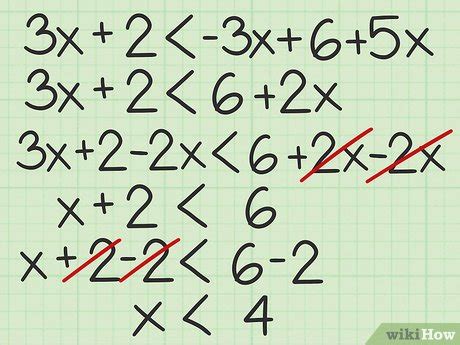 3x + 2 < -3x + 6 + 5x
3x + 2 < 6 + 2x
3x + 2 - 2x < 6 + 2x - 2x
x + 2 < 6
x + 2 - 2 < 6 - 2
x < 4
wikiHow